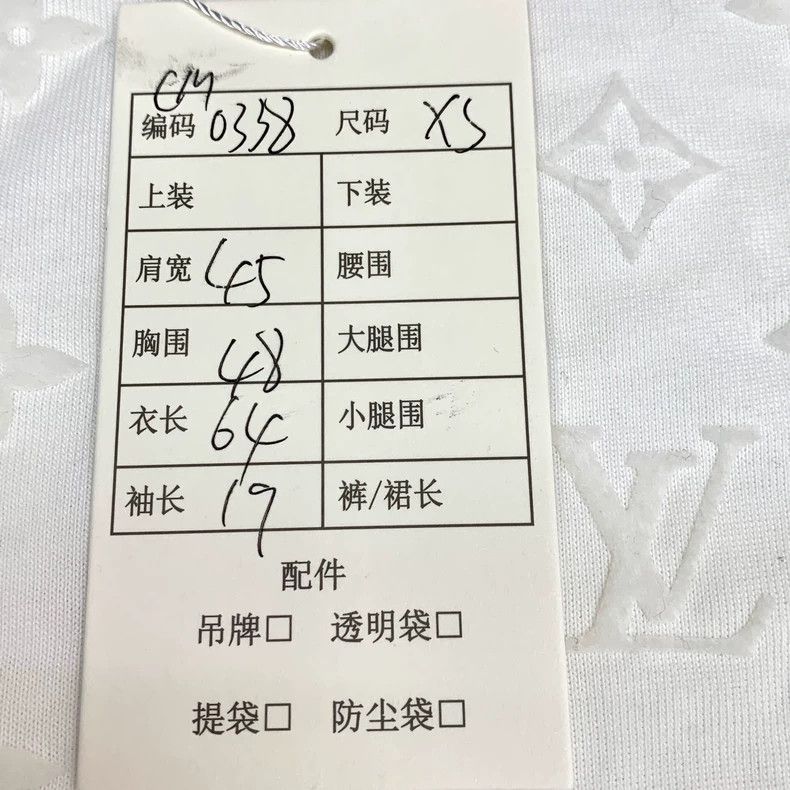 CM
编码 0358 尺码 XS
上装 下装
肩宽 45 腰围
胸围 48 大腿围
衣长 64 小腿围
袖长 19 裤/裙长
配件
吊牌□ 透明袋□
提袋□ 防尘袋□
LV
LV